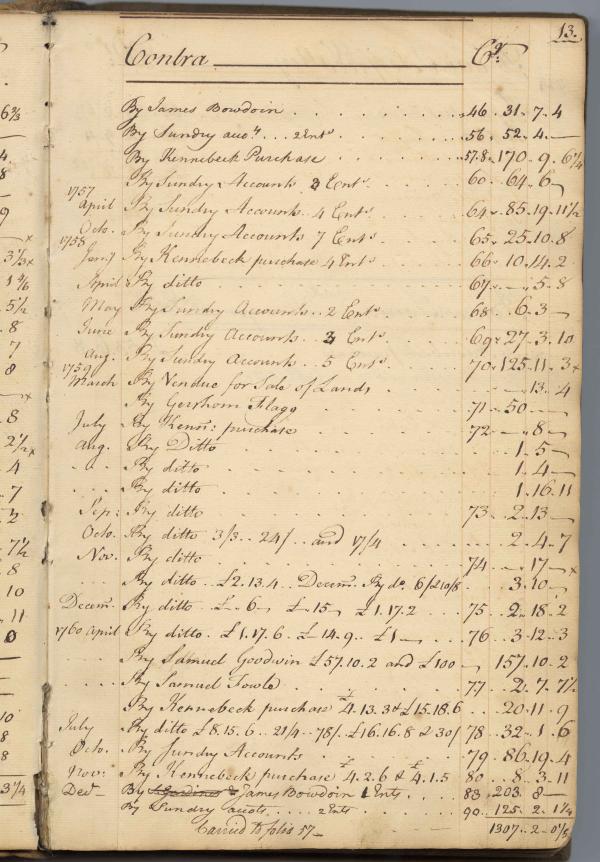 13.
Contra Cr.
By James Bowdoin 46 31 7 4
By Sundry accots. 2 Ents. 56 52 4 —
By Kennebeck Purchase 57.8 170 9 6 1/4
By Sundry Accounts 3 Ents. 60 64 6 —
1757
April By Sundry Accounts 4 Ents. 64 85 19 11 1/2
Octo. By Sundry Accounts 7 Ents. 65 25 10 8
1758
Jany By Kennebeck purchase 4 Ents 66 10 14 2
April By ditto 67 — 5 8
May By Sundry Accounts 2 Ents. 68 6 3 —
June By Sundry Accounts 3 Ents. 69 27 3 10
Aug. By Sundry Accounts 5 Ents. 70 125 11 3 x
1759
March By Vendue for Sale of Lands — 13 4
By Gershom Flagg 71 50 —
July By Kenne: purchase 72 — 8 —
Aug. By Ditto 1 5 —
By ditto 1 4 —
By ditto 1 16 11
Sep: By ditto 73 2 13 —
Octo. By ditto 3/3 24/ and 17/4 2 4 7
Nov. By ditto 74 — 17 — x
By ditto £2.13.4 Decemr. By do. 3 10 —
Decem. By ditto £– 6 – £– 15 – £1.17.2 75 2 18 2
1760 April By ditto £1.17.6 £– 14.9 £1 — 76 3 12 3
By Samuel Goodwin £57.10.2 and £100 — 157 10 2
By Samuel Fowle 77 2 7 7 1/2
By Kennebeck purchase £4.13.3 & £15.18.6 20 11 9
July By ditto £8.15.6 21/4 78/ £16.16.8 & 30/ 78 32 1 6
Octo. By Sundry Accounts 79 86 19 4
Nov: By Kennebeck purchase £4.2.6 & £4.1.5 80 8 3 11
Decr By James Bowdoin 1 Ents 83 203 8 —
By Sundry accots. 2 Ents 90 125 2 1 1/4
Carried to folio 57 1307 2